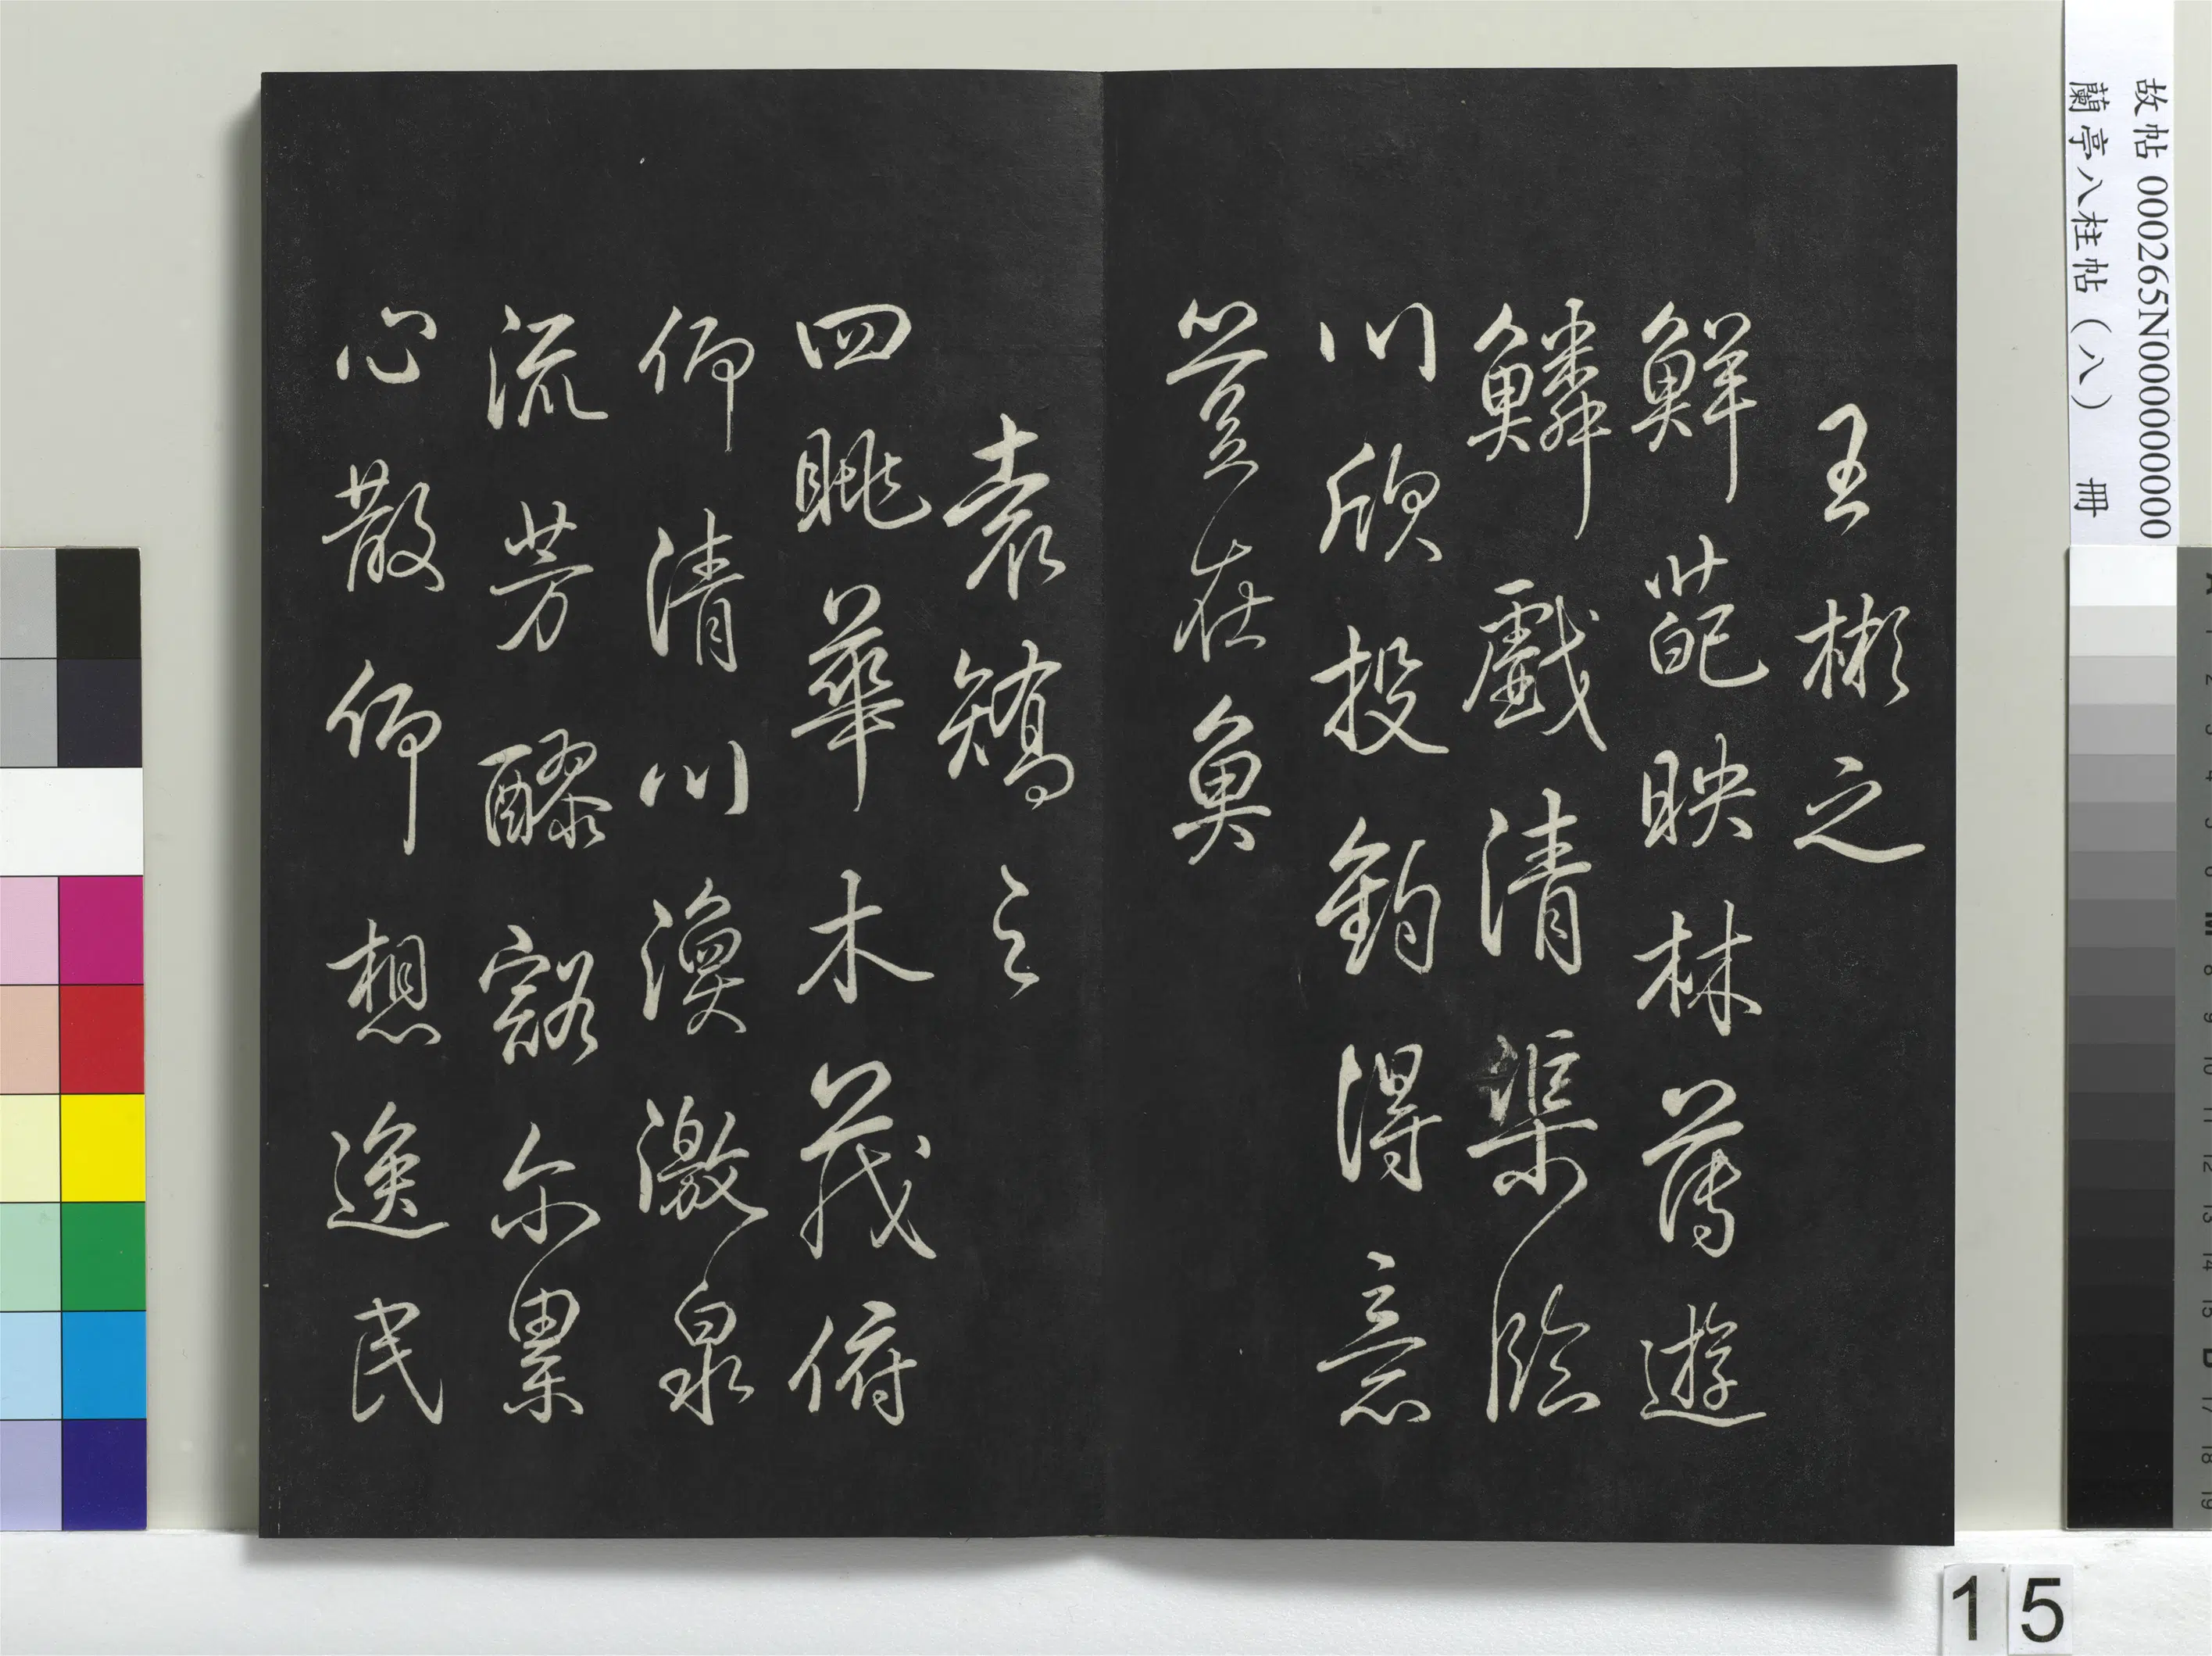 王彬之
鮮葩映林薄遊
鱗戲清渠臨
川欣投釣得意
豈在魚
袁嶠之
四眺華木茂俯
仰清川渙激泉
流芳醪豁尔累
心散仰想逸民
故帖 000265N000000000
蘭亭八柱帖（八） 冊
15